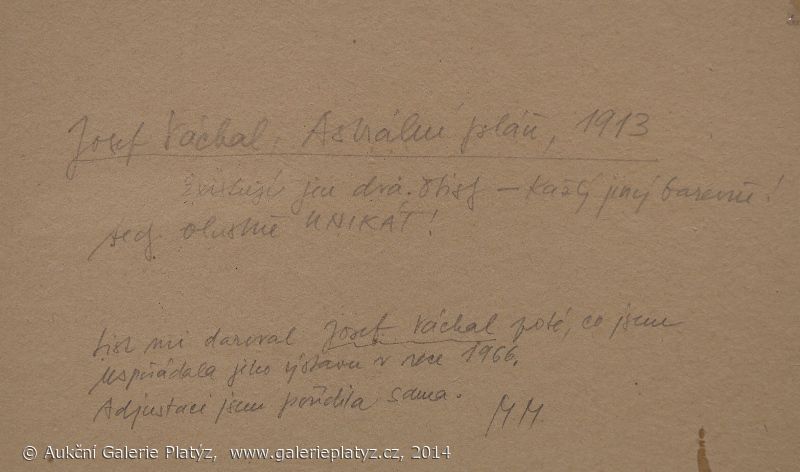 Josef Váchal, Astrální pláň, 1913
Existují jen dva otisky – každý jiný barevně!
tedy vlastně UNIKÁT!
List mi daroval Josef Váchal poté, co jsem
uspořádala jeho výstavu v roce 1966.
Adjustaci jsem pořídila sama.
MM
© Aukční Galerie Platýz, www.galerieplatyz.cz, 2014